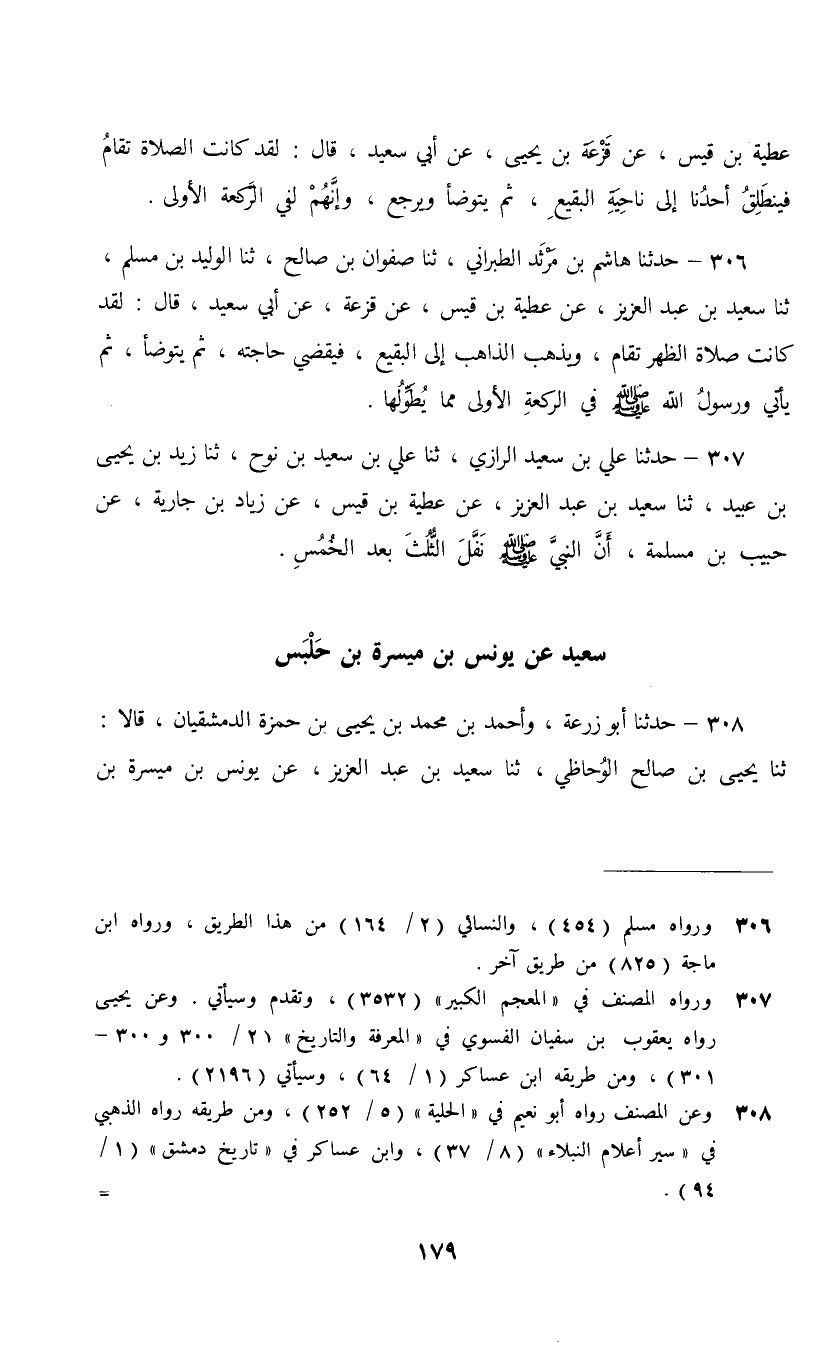 عطية بن قيس ، عن قَزْعَة بن يحيى ، عن أبي سعيد ، قال : لقد كانت الصلاة تقامُ
فينطَلِقُ أحدُنا إلى ناحِيَةِ البقيعِ ، ثم يتوضأ ويرجع ، وإنَّهُمْ لفي الرَّكعة الأولى .
٣٠٦ – حدثنا هاشم بن مَرْثَد الطبراني ، ثنا صفوان بن صالح ، ثنا الوليد بن مسلم ،
ثنا سعيد بن عبد العزيز ، عن عطية بن قيس ، عن قزعة ، عن أبي سعيد ، قال : لقد
كانت صلاة الظهر تقام ، ويذهب الذاهب إلى البقيع ، فيقضي حاجته ، ثم يتوضأ ، ثم
يأتي ورسولُ الله ﷺ في الركعةِ الأولى مما يُطَوِّلُها .
٣٠٧ – حدثنا علي بن سعيد الرازي ، ثنا علي بن سعيد بن نوح ، ثنا زيد بن يحيى
بن عبيد ، ثنا سعيد بن عبد العزيز ، عن عطية بن قيس ، عن زياد بن جارية ، عن
حبيب بن مسلمة ، أَنَّ النبيَّ ﷺ نَفَّلَ الثُّلُثَ بعد الخُمُسِ .
سعيد عن يونس بن ميسرة بن حَلْبَس
٣٠٨ – حدثنا أبو زرعة ، وأحمد بن محمد بن يحيى بن حمزة الدمشقيان ، قالا :
ثنا يحيى بن صالح الوُحاظي ، ثنا سعيد بن عبد العزيز ، عن يونس بن ميسرة بن
٣٠٦ ورواه مسلم (٤٥٤) ، والنسائي (٢/ ١٦٤) من هذا الطريق ، ورواه ابن
ماجة (٨٢٥) من طريق آخر .
٣٠٧ ورواه المصنف في «المعجم الكبير» (٣٥٣٢) ، وتقدم وسيأتي . وعن يحيى
رواه يعقوب بن سفيان الفسوي في «المعرفة والتاريخ» ٢١/ ٣٠٠ و ٣٠٠ –
٣٠١) ، ومن طريقه ابن عساكر (١/ ٦٤) ، وسيأتي (٢١٩٦) .
٣٠٨ وعن المصنف رواه أبو نعيم في «الحلية» (٥/ ٢٥٢) ، ومن طريقه رواه الذهبي
في «سير أعلام النبلاء» (٨/ ٣٧) ، وابن عساكر في «تاريخ دمشق» (١/
٩٤) . =
١٧٩